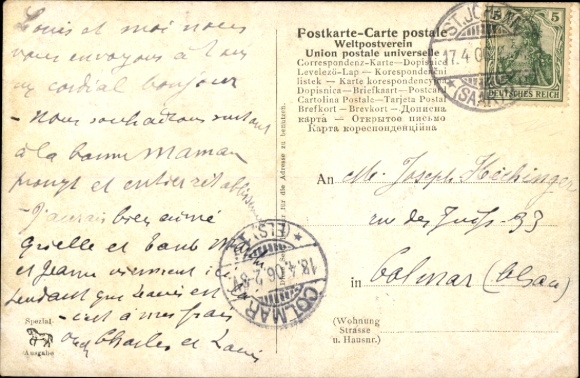 Louis et moi nous
vous envoyons à tous
un cordial bonjour
- Nous souhaitons surtout
à la bonne Maman
prompt et entier rétablissement
- J'aurais bien aimé
que et
et Jeanne viennent ici
pendant que Louis est
c'est à mes frais
Charles et Louis
Spezial-
Ausgabe
für die Adresse zu benutzen.
Postkarte-Carte postale
Weltpostverein
Union postale universelle
Correspondenz-Karte—Dopisnica
Levelező-Lap — Korespondenční
listek — Karta korespondencyjna
Dopisnica — Briefkaart — Postcard
Cartolina Postale — Tarjeta Postal
Brefkort — Brevkort — Дописна
карта — Открытое письмо
Карта кореспонденційна
ST. JOHANN
17.4.06
(SAAR)
5 5
DEUTSCHES REICH
An M. Joseph
rue des Juifs 33
in Colmar (Alsace)
(Wohnung
Strasse
u. Hausnr.)
COLMAR
18.4.06.
(ELS.)